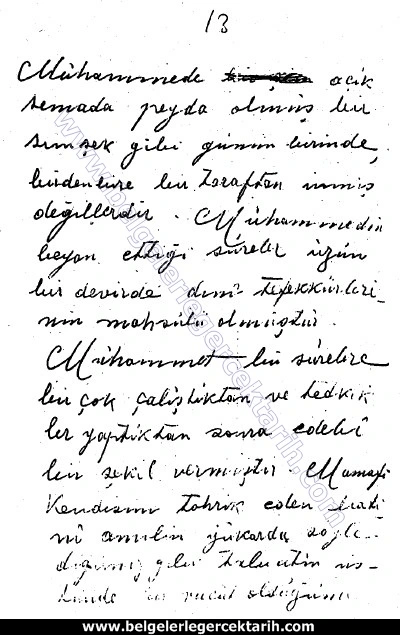 13
Mühammede açik
semada peyda olmuş bir
şimşek gibi günün birinde,
birdenbire bir taraftan inmiş
değillerdir. Mühammedin
beyan ettiği süreler üzün
bir devirde dinî tefekkürleri-
nin mahsülü olmüştür.
Mühammet bu sürelere
bir çok çaliştiktan ve tedkik
ler yaptiktan sonra edebî
bir şekil vermiştir. Mamafi
kendisini tahrik eden bati
nî amilin yükarda söyle-
diğimiz gibi tabiatin üs-
tünde bir vücüt oldüğünü
www.belgelerlegercektarih.com
www.belgelerlegercektarih.com